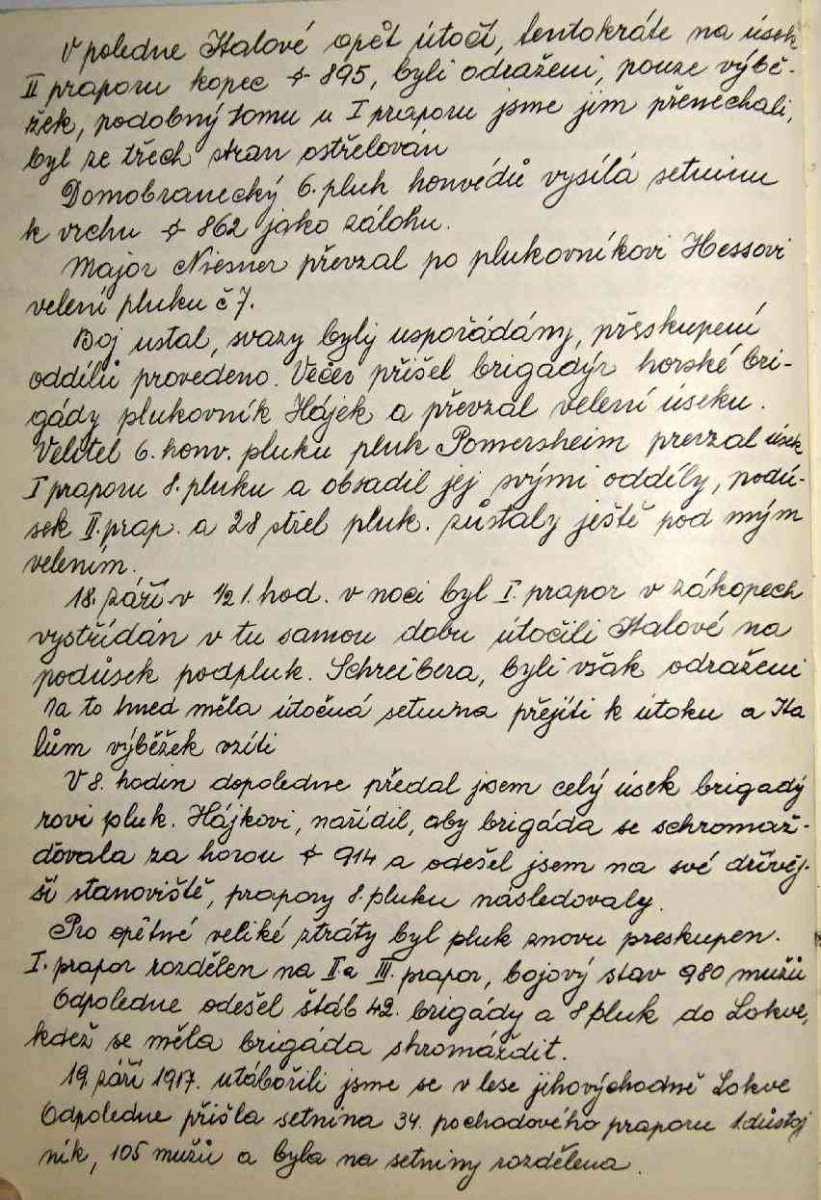 V poledne Italové opět útočí, tentokráte na úsek
II praporu kopec ⌖ 895, byli odraženi, pouze výbě-
žek, podobný tomu u I praporu jsme jim přenechali,
byl ze třech stran ostřelován
Domobranecký 6. pluk honvédů vysílá setninu
k vrchu ⌖ 862 jako zálohu.
Major Niesner převzal po plukovníkovi Hessovi
velení pluku č 7.
Boj ustal, svazy byly uspořádány, přeskupení
oddílů provedeno. Večer přišel brigadýr horské bri-
gády plukovník Hájek a převzal velení úseku.
Velitel 6. honv. pluku pluk Pomersheim prevzal úsek
I praporu 8. pluku a obsadil jej svými oddíly, podú-
sek II. prap. a 28 střel pluk. zůstaly ještě pod mým
velením.
18. září v 1/2 1. hod. v noci byl I. prapor v zákopech
vystřídán v tu samou dobu útočili Italové na
podúsek podpluk. Schreibera, byli však odraženi
Na to hned měla útočná setnina přejíti k útoku a Ita
lům výběžek vzíti
V 8. hodin dopoledne předal jsem celý úsek brigadý
rovi pluk. Hájkovi, nařídil, aby brigáda se schromaž-
ďovala za horou ⌖ 914 a odešel jsem na své dřívěj-
ší stanoviště, prapory 8. pluku následovaly.
Pro opětné veliké ztráty byl pluk znovu preskupen.
I. prapor rozdělen na II a III. prapor, bojový stav 980 mužů
Odpoledne odešel štáb 42. brigády a 8 pluk do Lokve,
kdež se měla brigáda shromáždit.
19. září 1917. utábořili jsme se v lese jihovýchodně Lokve
Odpoledne přišla setnina 34. pochodového praporu 1. důstoj
ník, 105 mužů a byla na setniny rozdělena.